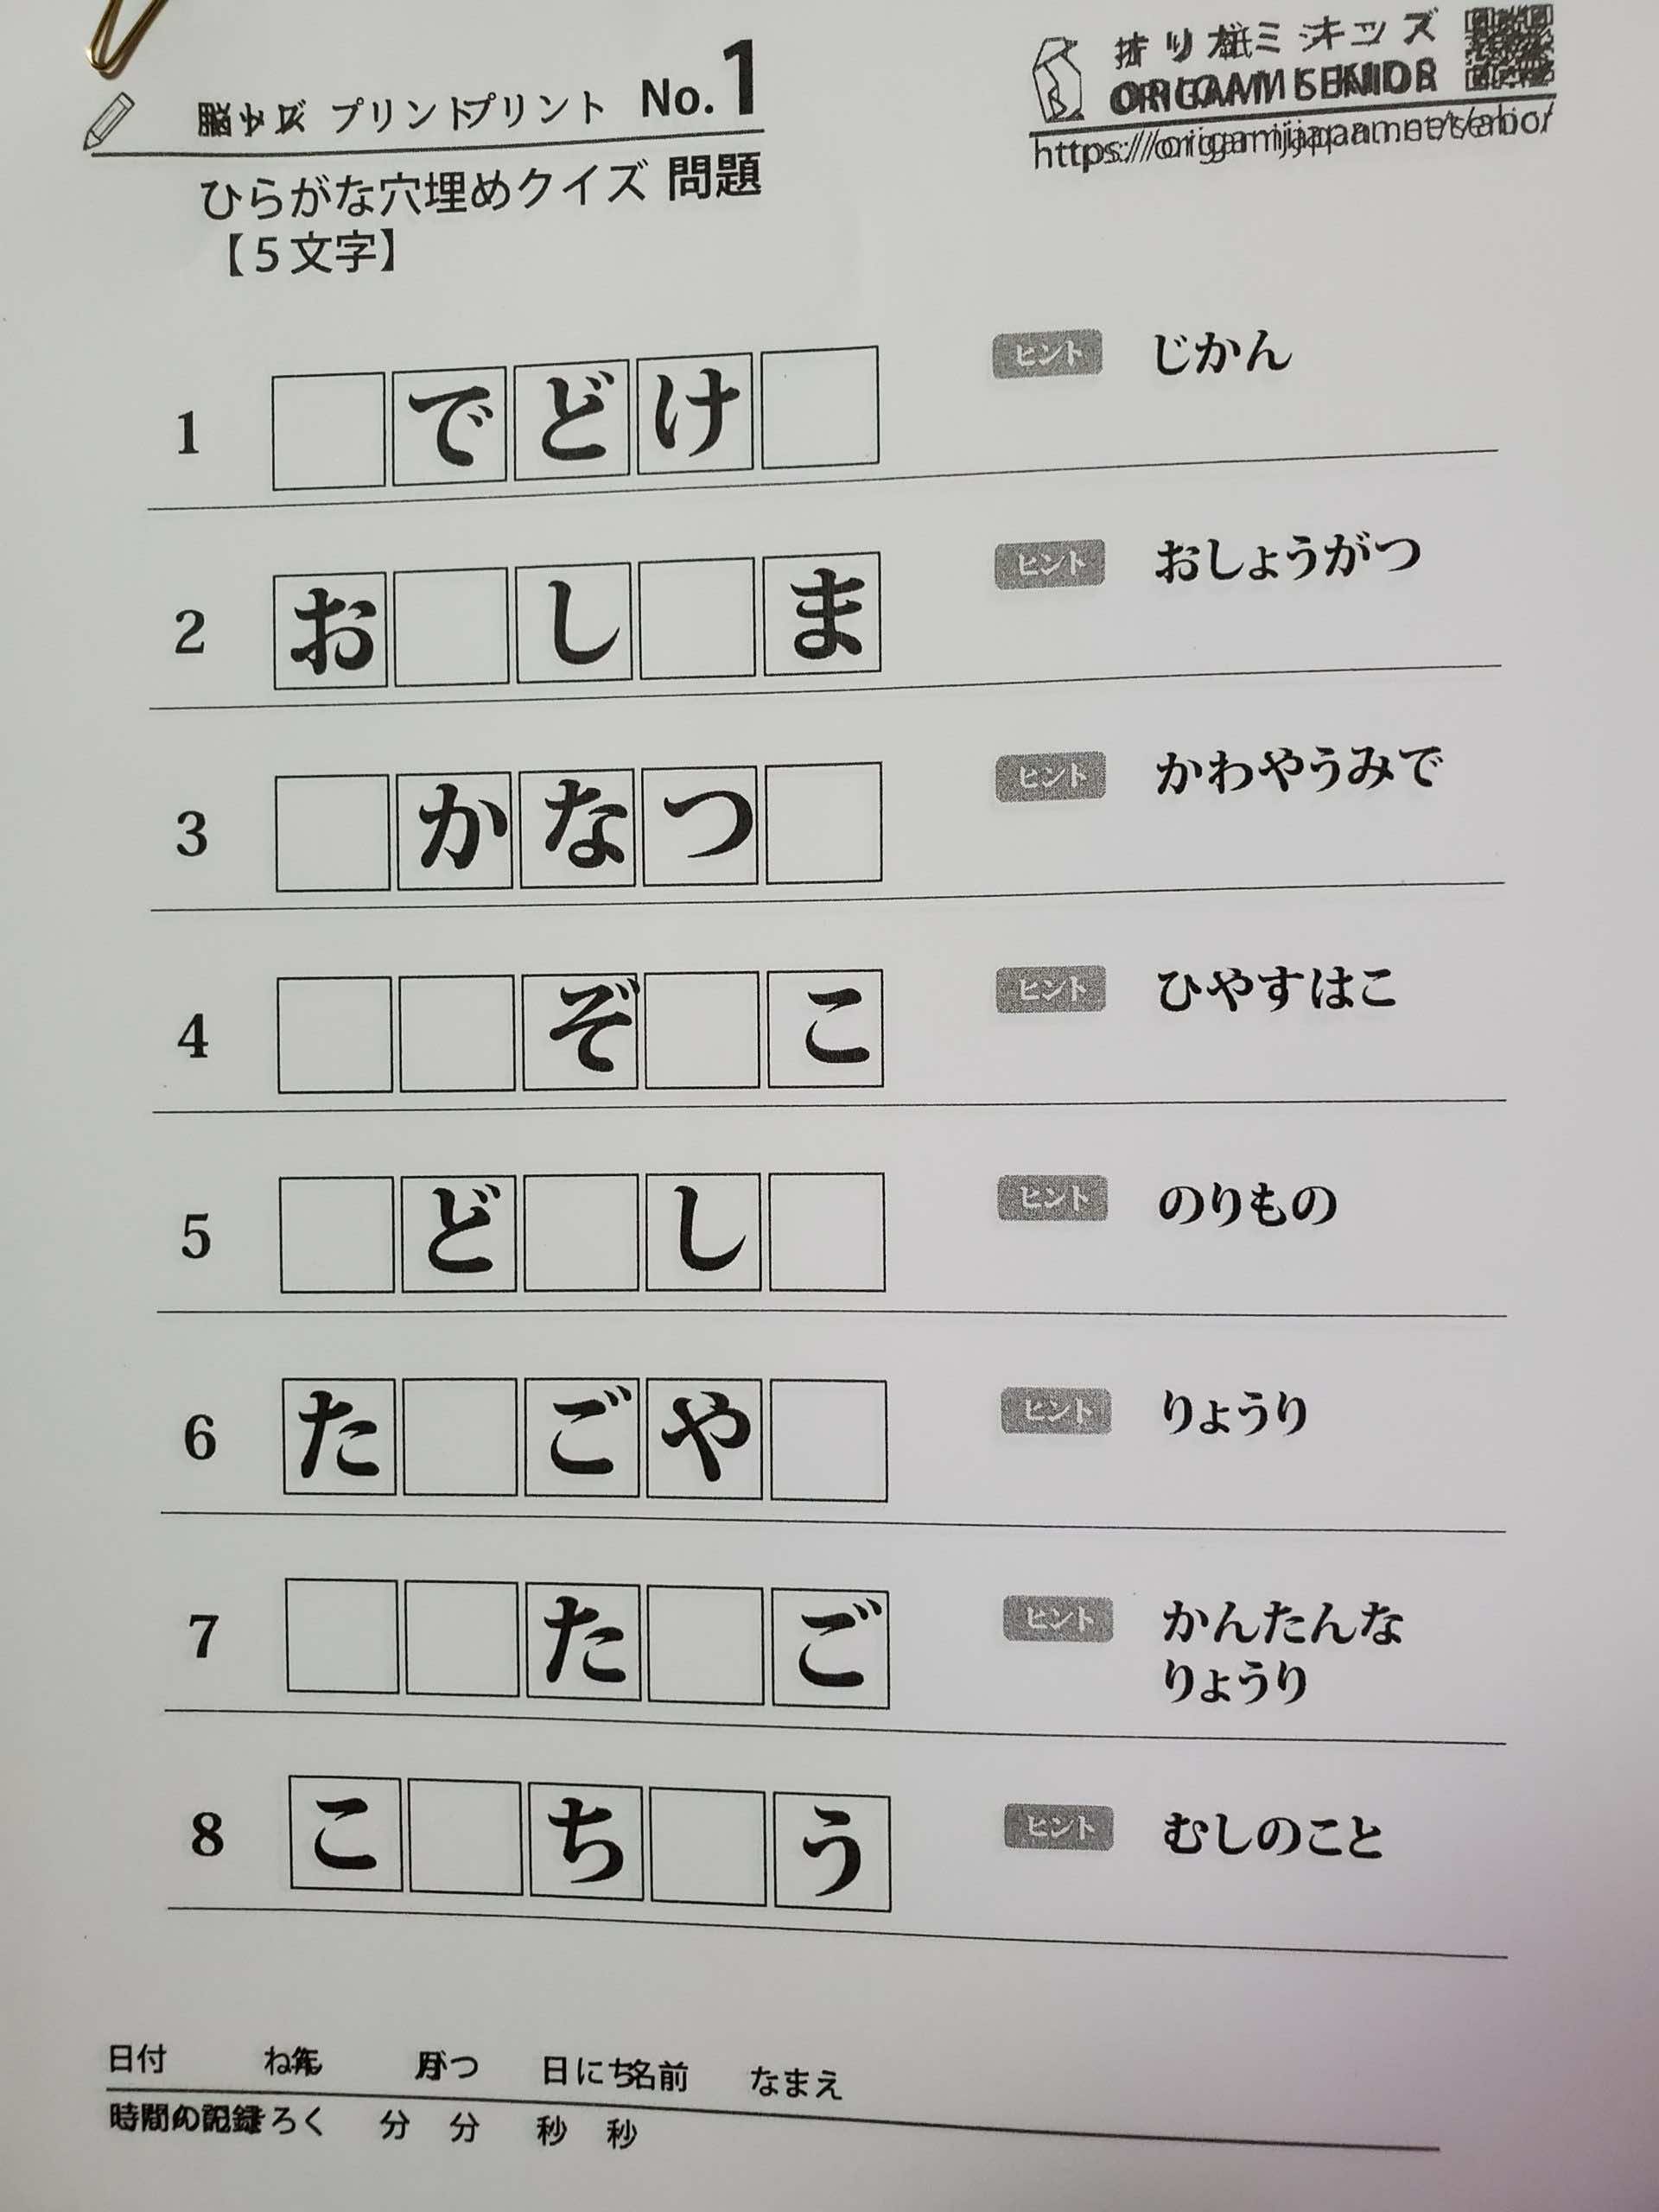 プリント プリント No.1
ひらがな穴埋めクイズ 問題
【5文字】
ORIGAMI SENIOR
1 でどけ ヒント じかん
2 お し ま ヒント おしょうがつ
3 かなつ ヒント かわやうみで
4 ぞ こ ヒント ひやすはこ
5 ど し ヒント のりもの
6 た ごや ヒント りょうり
7 た ご ヒント かんたんな
りょうり
8 こ ち う ヒント むしのこと
日付 日にち 名前 なまえ
分 分 秒 秒